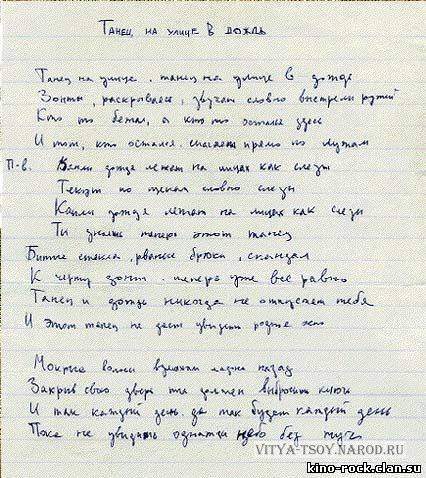 Танец на улице в дождь
Танец на улице, танец на улице в дождь
Зонты, раскрываясь, звучат словно выстрелы ружей
Кто то бежал, а кто то остался здесь
И тот, кто остался прямо по лужам
П-в. Капли дождя лежат на лицах как слезы
Текут по щекам словно слезы
Капли дождя лежат на лицах как слезы
Ты знаешь теперь этот танец
Битые стекла, рваные брюки, скандал
К черту зонт. теперь уже все равно
Танец и дождь никогда не отпустят тебя
И этот танец не даст увидеть родное
Мокрые волосы взмахом назад
Закрыв свою дверь ты должен выбросить ключ
И так каждый день. да так будет каждый день
Пока не увидишь однажды небо без туч
VITYA-TSOY.NAROD.RU
kino-rock.clan.su